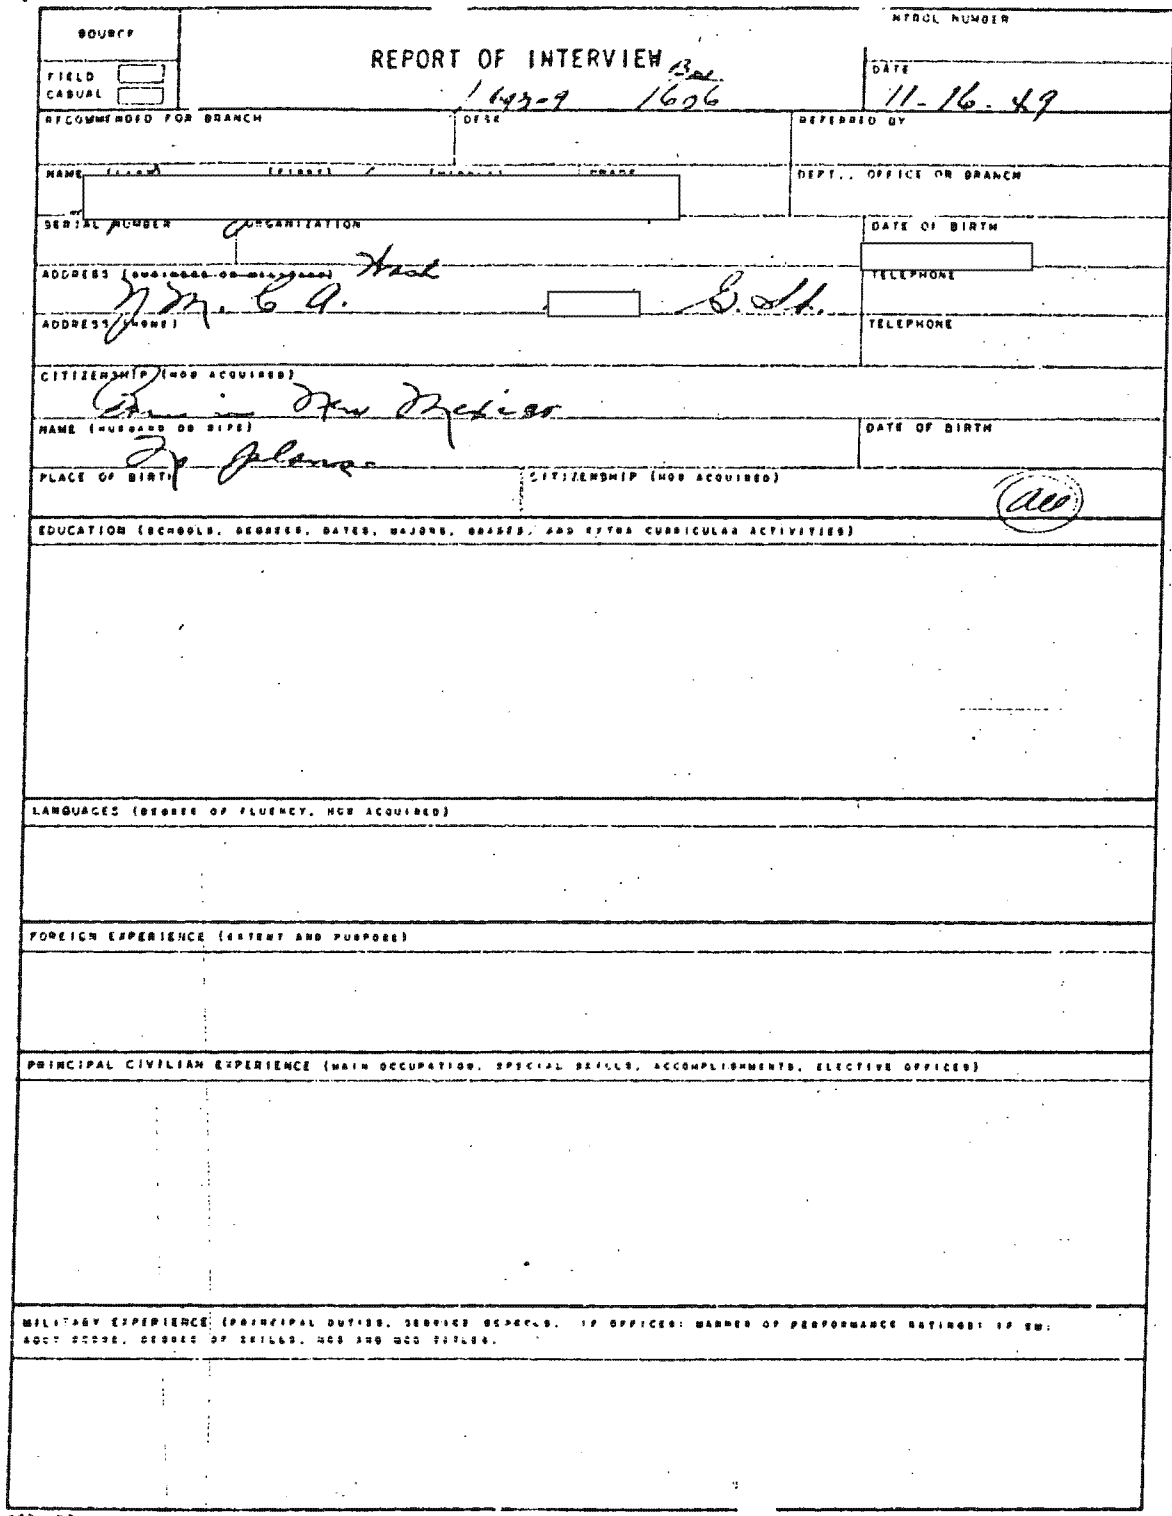 NTROL NUMBER
SOURCE
REPORT OF INTERVIEW
FIELD
CASUAL
DATE
1606
11-16-49
RECOMMENDED FOR BRANCH
DESK
REFERRED BY
NAME
DEPT., OFFICE OR BRANCH
SERIAL NUMBER
ORGANIZATION
DATE OF BIRTH
ADDRESS (BUSINESS OR MILITARY)
TELEPHONE
Y.M.C.A. G. St.
ADDRESS (HOME)
TELEPHONE
CITIZENSHIP (HOW ACQUIRED)
Born in New Mexico
NAME (HUSBAND OR WIFE)
DATE OF BIRTH
No plans
PLACE OF BIRTH
CITIZENSHIP (HOW ACQUIRED)
EDUCATION (SCHOOLS, DEGREES, DATES, MAJORS, GRADES, AND EXTRA CURRICULAR ACTIVITIES)
LANGUAGES (DEGREE OF FLUENCY, HOW ACQUIRED)
FOREIGN EXPERIENCE (EXTENT AND PURPOSE)
PRINCIPAL CIVILIAN EXPERIENCE (MAIN OCCUPATION, SPECIAL SKILLS, ACCOMPLISHMENTS, ELECTIVE OFFICES)
MILITARY EXPERIENCE (PRINCIPAL DUTIES, SERVICE SCHOOLS. IF OFFICER: MANNER OF PERFORMANCE RATINGS: IF EM:
AGCT SCORE, DEGREE OF SKILLS, MOS AND MOS TITLES.